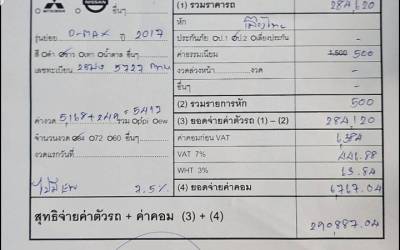 MITSUBISHI NISSAN
อื่นๆ
(1) รวมราคารถ 284,120
รุ่นย่อย D-MAX ปี 2017
หัก เมืองไทย
สี ดำ ขาว เทา น้ำตาล อื่นๆ
ประกันภัย ป.1 ป.2 เลี่ยงประกัน
เลขทะเบียน 2ฒง 5727 กทม
ค่าธรรมเนียม 1,500 500
งวดล่วงหน้า งวด
อื่นๆ
(2) รวมรายการหัก 500
ค่างวด 5,168+249 = 5417 รวม ppi ew
(3) ยอดจ่ายค่ารถ (1) – (2) 284,120
จำนวนงวด 84 72 60 อื่นๆ
ค่าคอมก่อน VAT
งวดแรกวันที่
VAT 7% 441.88
WHT 3%
ไม่มี 2.5%
(4) ยอดจ่ายค่าคอม 6,767.04
สุทธิจ่ายค่าตัวรถ + ค่าคอม (3) + (4) 290,887.04